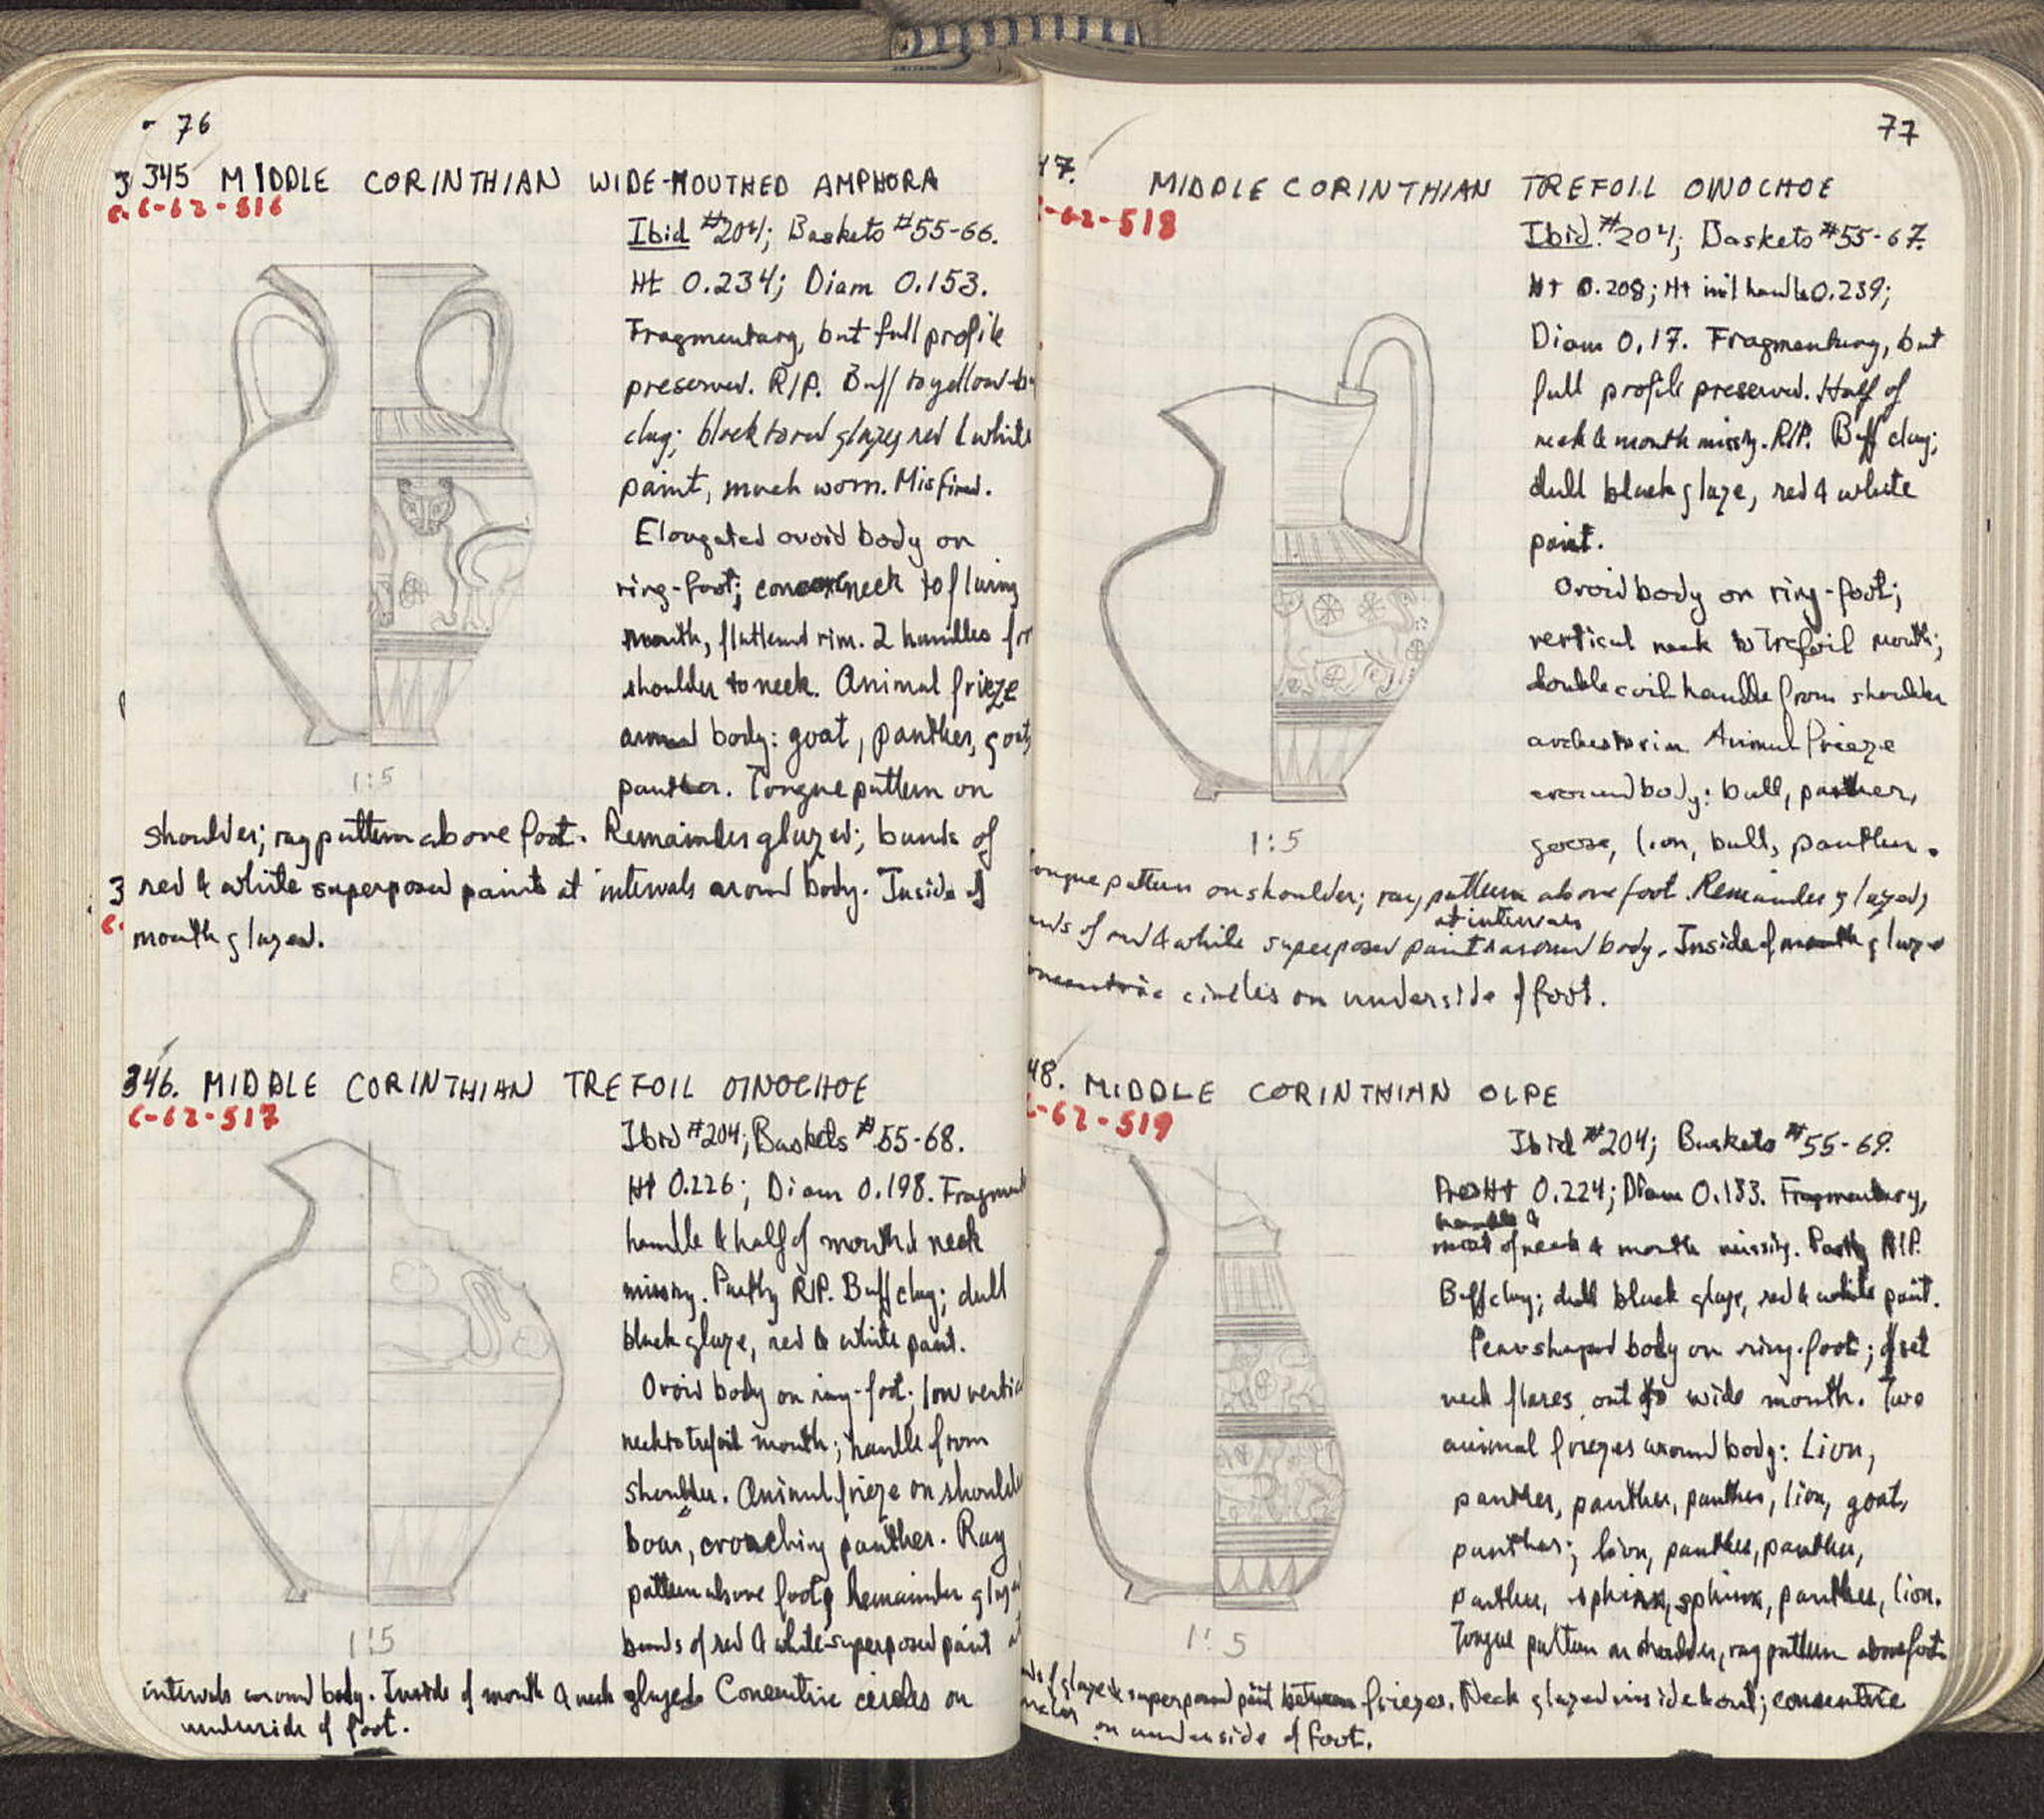 76
345 MIDDLE CORINTHIAN WIDE-MOUTHED AMPHORA
C-62-516
Ibid #204; Baskets #55-66.
Ht 0.234; Diam 0.153.
Fragmentary, but full profile
preserved. R/P. Buff to yellow-bu
clay; black to red glaze, red & white
paint, much worn. Misfired.
Elongated ovoid body on
ring-foot; neck to flaring
mouth, flattened rim. 2 handles fr
shoulder to neck. Animal frieze
around body: goat, panther, goat,
panther. Tongue pattern on
1:5
shoulder; ray pattern above foot. Remainder glazed; bands of
red & white superposed paint at intervals around body. Inside of
mouth glazed.
346. MIDDLE CORINTHIAN TREFOIL OINOCHOE
C-62-517
Ibid #204; Baskets #55-68.
Ht 0.226; Diam 0.198. Fragment
handle & half of mouth & neck
missing. Partly R/P. Buff clay; dull
black glaze, red & white paint.
Ovoid body on ring-foot; low vertic
neck to trefoil mouth; handle from
shoulder. Animal frieze on should
boar, crouching panther. Ray
pattern above foot; Remainder glazed
bands of red & white superposed paint at
1:5
intervals around body. Inside of mouth & neck glazed. Concentric circles on
underside of foot.
77
47.
MIDDLE CORINTHIAN TREFOIL OINOCHOE
-62-518
Ibid. #204; Baskets #55-67.
Ht 0.208; Ht incl handle 0.239;
Diam 0.17. Fragmentary, but
full profile preserved. Half of
neck & mouth missing. R/P. Buff clay;
dull black glaze, red & white
paint.
Ovoid body on ring-foot;
vertical neck to trefoil mouth;
double coil handle from shoulder
arches to rim. Animal frieze
around body: bull, panther,
goose, lion, bull, panther.
1:5
ongue pattern on shoulder; ray pattern above foot. Remainder glazed;
at intervals
nds of red & white superposed paint around body. Inside of mouth glaze
oncentric circles on underside of foot.
48. MIDDLE CORINTHIAN OLPE
-62-519
Ibid #204; Baskets #55-69.
Pres Ht 0.224; Diam 0.133. Fragmentary,
handle &
most of neck & mouth missing. Partly R/P.
Buff clay; dull black glaze, red & white paint.
Pear-shaped body on ring-foot; offset
neck flares out to wide mouth. Two
animal friezes around body: Lion,
panther, panther, panther, lion, goat,
panther; lion, panther, panther,
panther, sphinx, sphinx, panther, lion.
Tongue pattern on shoulder, ray pattern above foot.
1:5
nds of glaze & superposed paint between friezes. Neck glazed inside & out; concentric
on underside of foot.